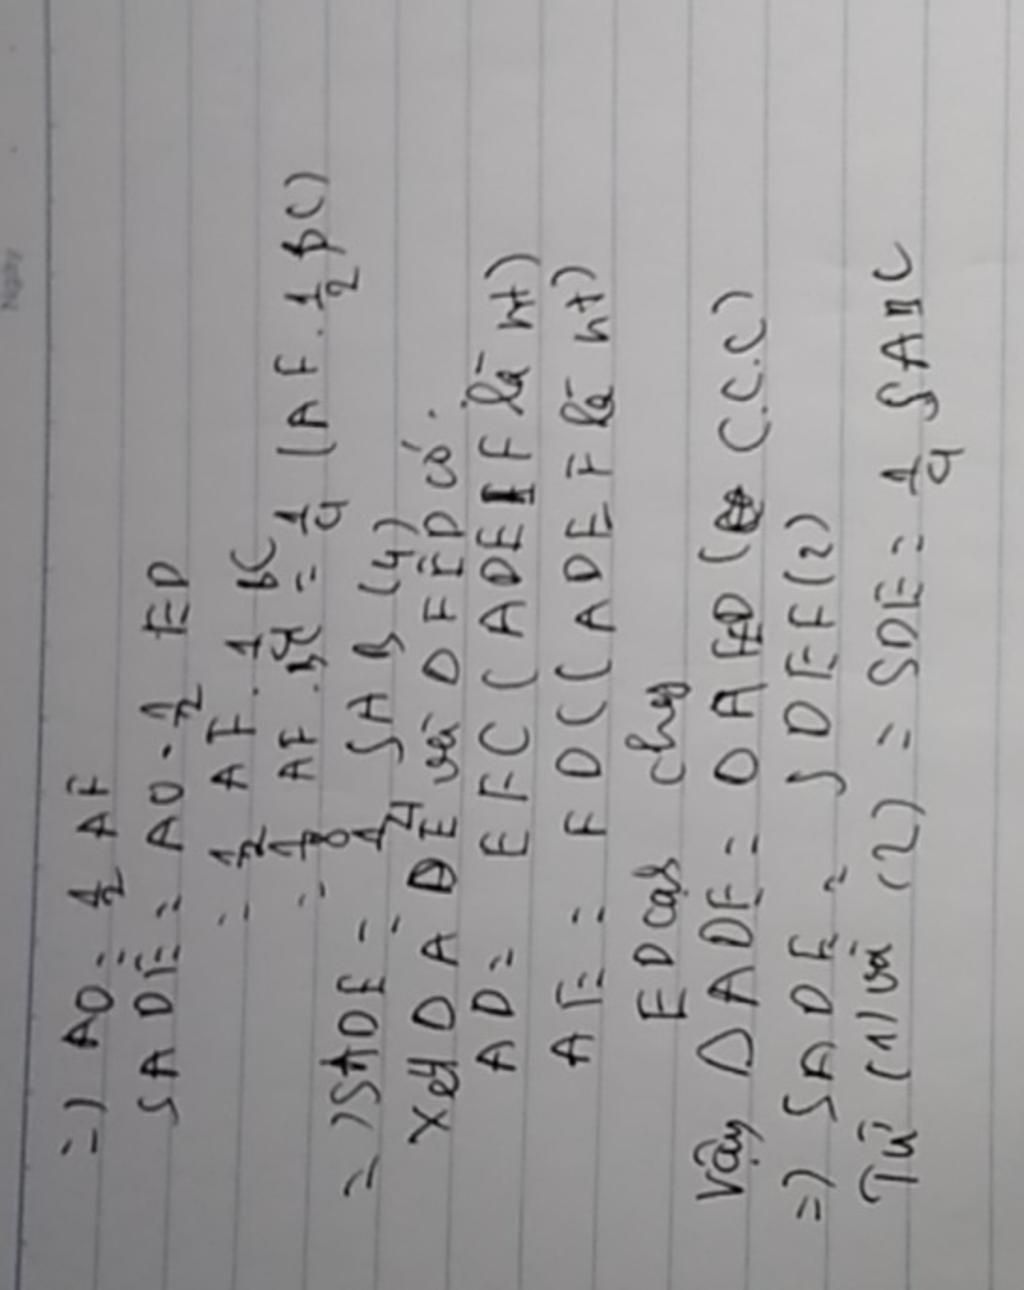 =) AO = 1/2 AF
SADE = AO . 1/2 ED
= 1/2 AF . 1/2 BC
= 1/8 AF . BC = 1/4 (AF . 1/2 BC)
=) SADE = 1/4 SAB (4)
Xét Δ ADE và Δ FED có.
AD = EFC (ADEF là ht)
AE = FD (( ADEF là ht)
ED cạh chug
Vậy Δ ADE = Δ AFD ( C.C.C)
=) SADE = SDEF (2)
Từ (1) và (2) = SDE = 1/4 SABC
Ngày